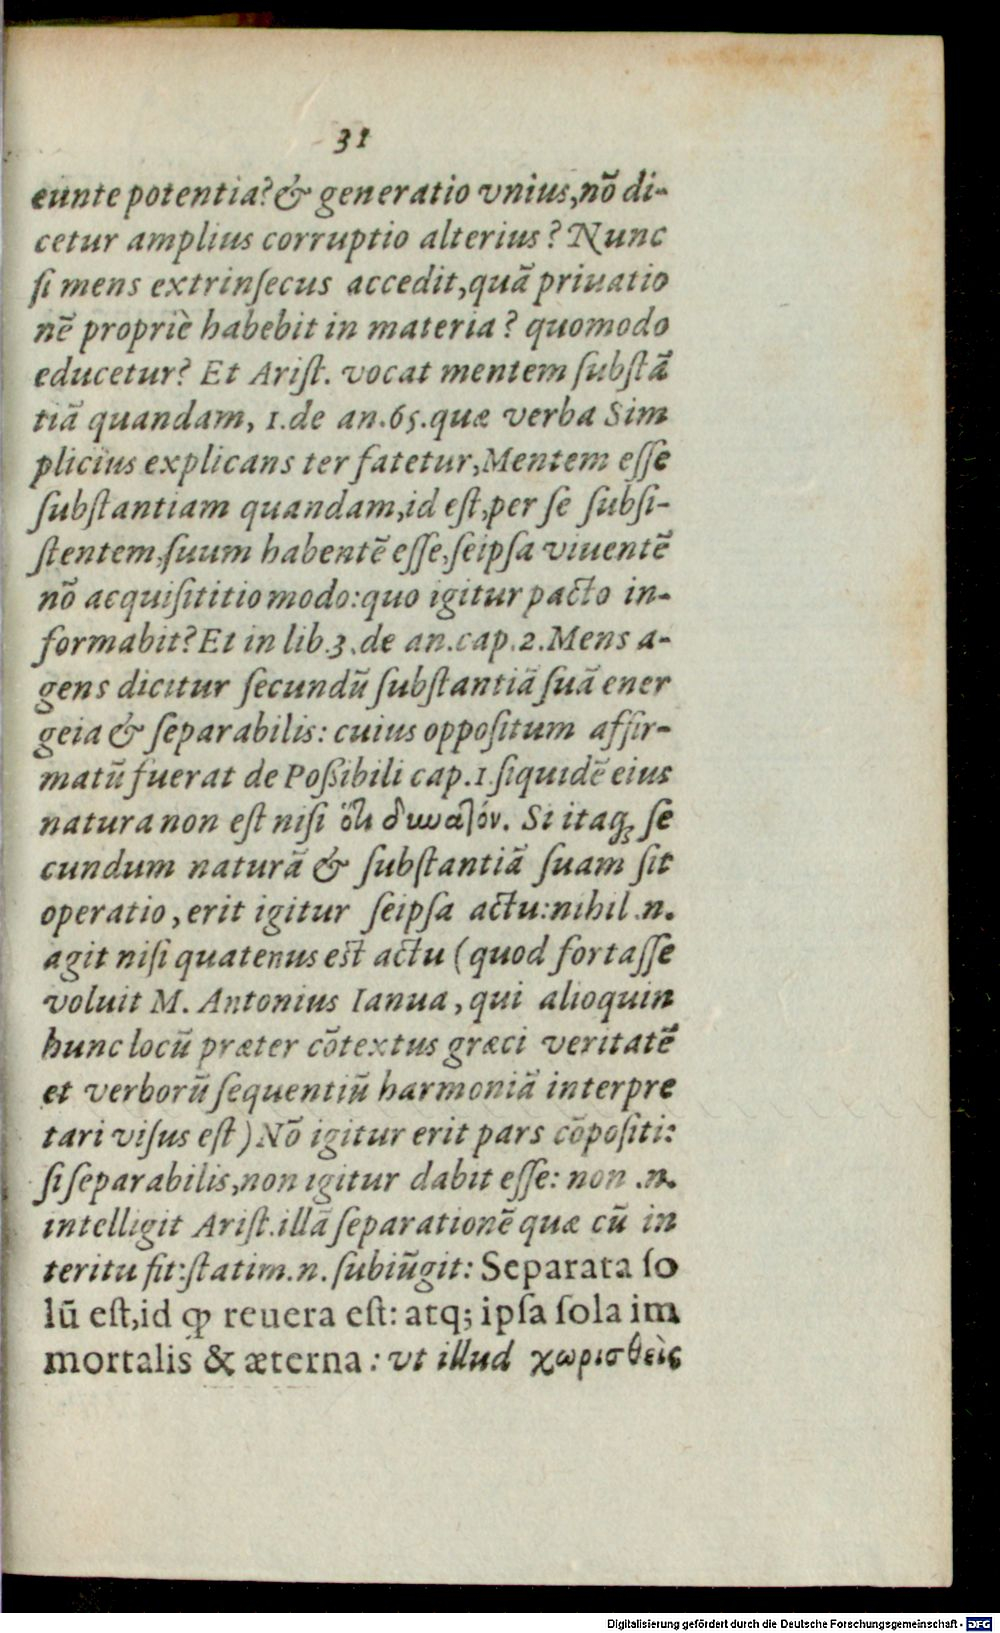 31
eunte potentia? & generatio vnius, nō di-
cetur amplius corruptio alterius? Nunc
ſi mens extrinſecus accedit, quā priuatio
nē propriè habebit in materia? quomodo
educetur? Et Ariſt. vocat mentem ſubſtā
tiā quandam, 1. de an. 65. quæ verba Sim
plicius explicans ter fatetur, Mentem eſſe
ſubſtantiam quandam, id eſt, per ſe ſubſi-
ſtentem, ſuum habentē eſſe, ſeipſa viuentē
nō acquiſititio modo: quo igitur pacto in-
formabit? Et in lib. 3. de an. cap. 2. Mens a-
gens dicitur ſecundū ſubſtantiā ſuā ener
geia & ſeparabilis: cuius oppoſitum affir-
matū fuerat de Poßibili cap. 1. ſiquidē eius
natura non eſt niſi ὅτι δυνατόν. Si itaq; ſe
cundum naturā & ſubſtantiā ſuam ſit
operatio, erit igitur ſeipſa actu: nihil .n.
agit niſi quatenus est actu (quod fortaſſe
voluit M. Antonius Ianua, qui alioquin
hunc locū præter cōtextus græci veritatē
et verborū ſequentiū harmoniā interpre
tari viſus eſt) Nō igitur erit pars cōpoſiti:
ſi ſeparabilis, non igitur dabit eſſe: non .n.
intelligit Ariſt. illā ſeparationē quæ cū in
teritu fit: ſtatim .n. ſubiūgit: Separata ſo
lū eſt, id ꝙ reuera eſt: atq; ipſa ſola im
mortalis & æterna: vt illud χωρισθεὶς
Digitalisierung gefördert durch die Deutsche Forschungsgemeinschaft - DFG